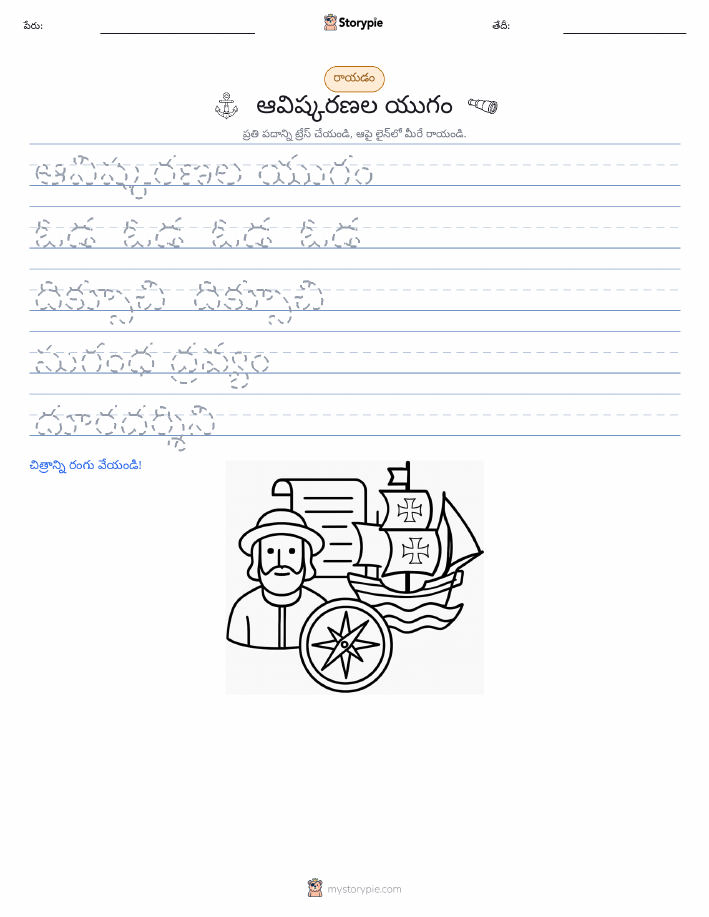 పేరు:
Storypie
తేదీ:
రాయడం
ఆవిష్కరణల యుగం
ప్రతి పదాన్ని ట్రేస్ చేయండి, ఆపై లైన్‌లో మీరే రాయండి.
ఆవిష్కరణల యుగం
ఓడ ఓడ ఓడ ఓడ
దిక్సూచి దిక్సూచి
సుగంధ ద్రవ్యం
దూరదర్శిని
చిత్రాన్ని రంగు వేయండి!
mystorypie.com